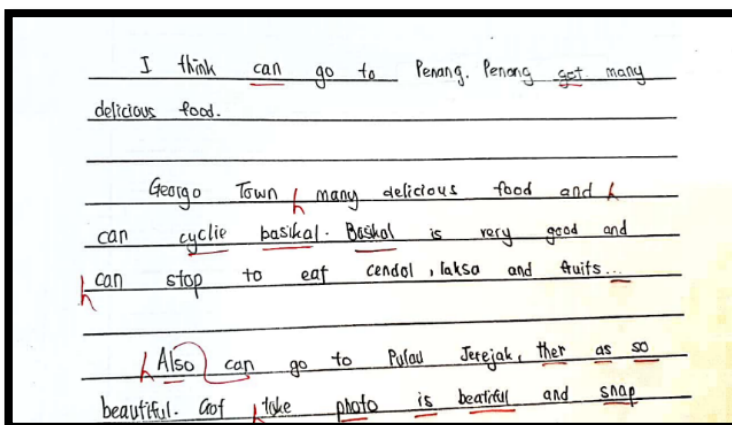 I think can go to Penang. Penang got many
delicious food.
Georgo Town many delicious food and
can cyclie basikal. Baskal is very good and
can stop to eat cendol, laksa and fruits...
Also can go to Pulau Jerejak, ther as so
beautiful. Gof take photo is beatiful and snap